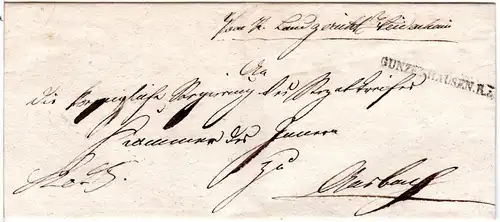 Vom K. Landgericht Heidenheim
GUNZENHAUSEN.R.3
An
die Königliche Regierung des Rezatkreises
Kammer des Innern
zu
Ansbach